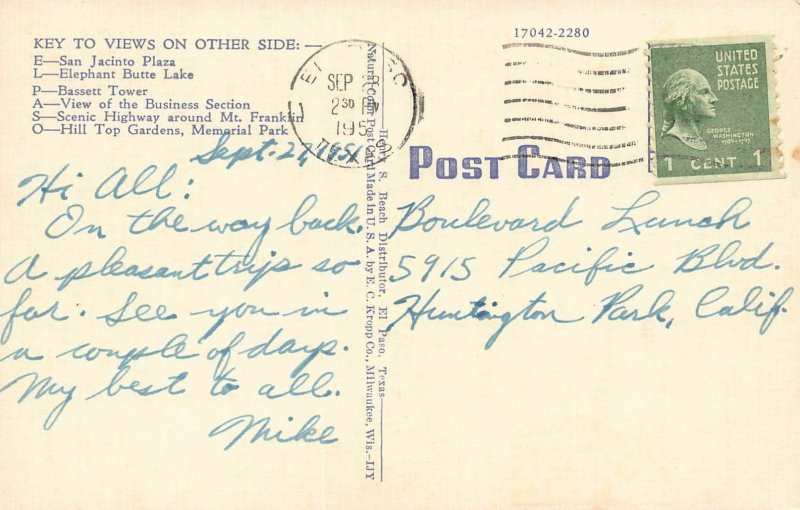 17042-2280
KEY TO VIEWS ON OTHER SIDE: —
E—San Jacinto Plaza
L—Elephant Butte Lake
P—Bassett Tower
A—View of the Business Section
S—Scenic Highway around Mt. Franklin
O—Hill Top Gardens, Memorial Park
EL PASO
SEP 2
2 30 PM
195
UNITED
STATES
POSTAGE
GEORGE
WASHINGTON
1789-1797
1 CENT 1
POST CARD
Natural Color Post Card Made in U. S. A. by E. C. Kropp Co., Milwaukee, Wis.—IJY
S. Beach Distributor, El Paso, Texas—
Sept. 27, 1951
Hi All:
On the way back.
A pleasant trip so
far. See you in
a couple of days.
My best to all.
Mike
Boulevard Lunch
5915 Pacific Blvd.
Huntington Park, Calif.